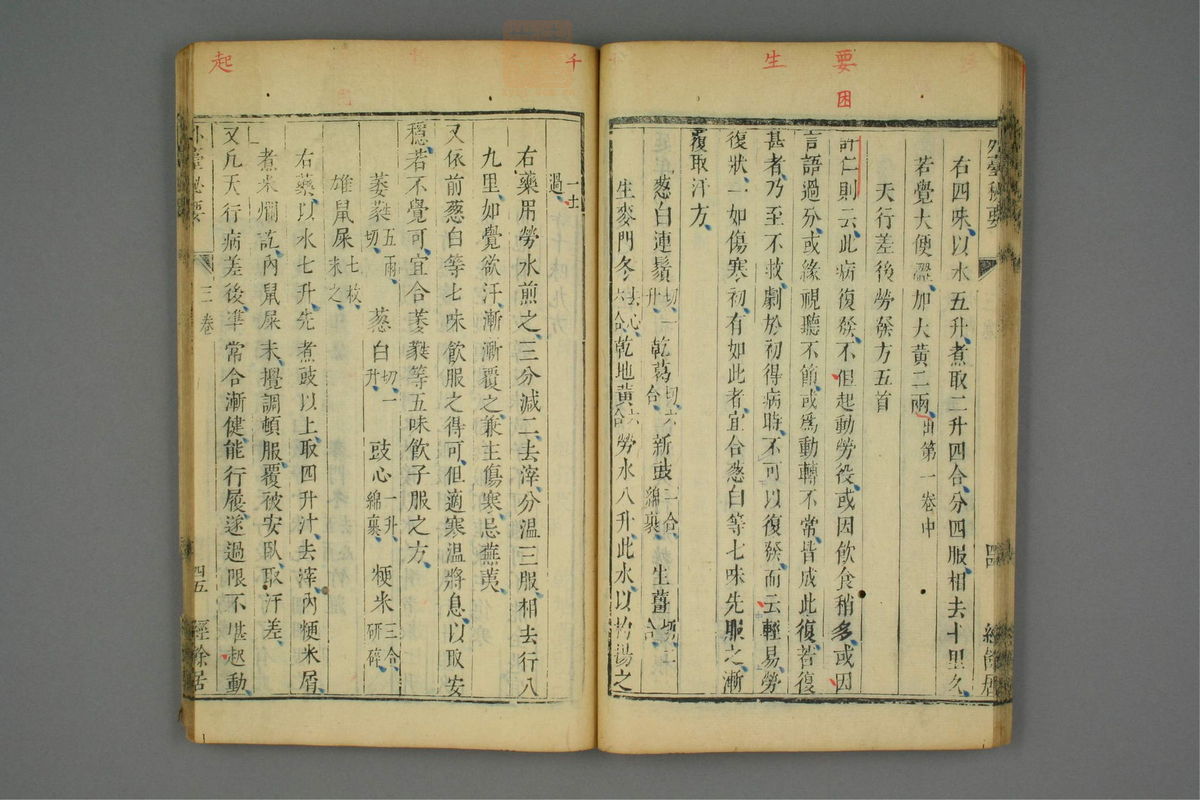 要 生
困
外臺秘要
四四
經餘居
右四味以水五升煮取二升四合分四服相去十里久
若覺大便澀加大黃二兩出第一卷中
天行差後勞發方五首
許仁則云此病復發不但起動勞役或因飲食稍多或因
言語過分或緣視聽不節或爲動轉不常皆成此復若復
甚者乃至不救劇於初得病時不可以復發而云輕易勞
復狀一如傷寒初有如此者宜合葱白等七味先服之漸
覆取汗方
葱白連鬚切一升 乾葛切六合 新豉一合綿裹 生薑切二合
生麥門冬去心六合 乾地黃六合 勞水八升此水以杓揚之
千 起
一千過
右藥用勞水煎之三分減二去滓分溫三服相去行八
九里如覺欲汗漸漸覆之兼主傷寒忌蕪荑
又依前葱白等七味飲服之得可但適寒溫將息以取安
穩若不覺可宜合葳蕤等五味飲子服之方
葳蕤五兩切 葱白切一升 豉心一升綿裹 粳米三合研碎
雄鼠屎七枚末之
右藥以水七升先煮豉以上取四升汁去滓內粳米屑
煮米爛訖內鼠屎末攪調頓服覆被安臥取汗差
又凡天行病差後準常合漸健能行履遂過限不堪起動
外臺秘要
三卷
四五
經餘居